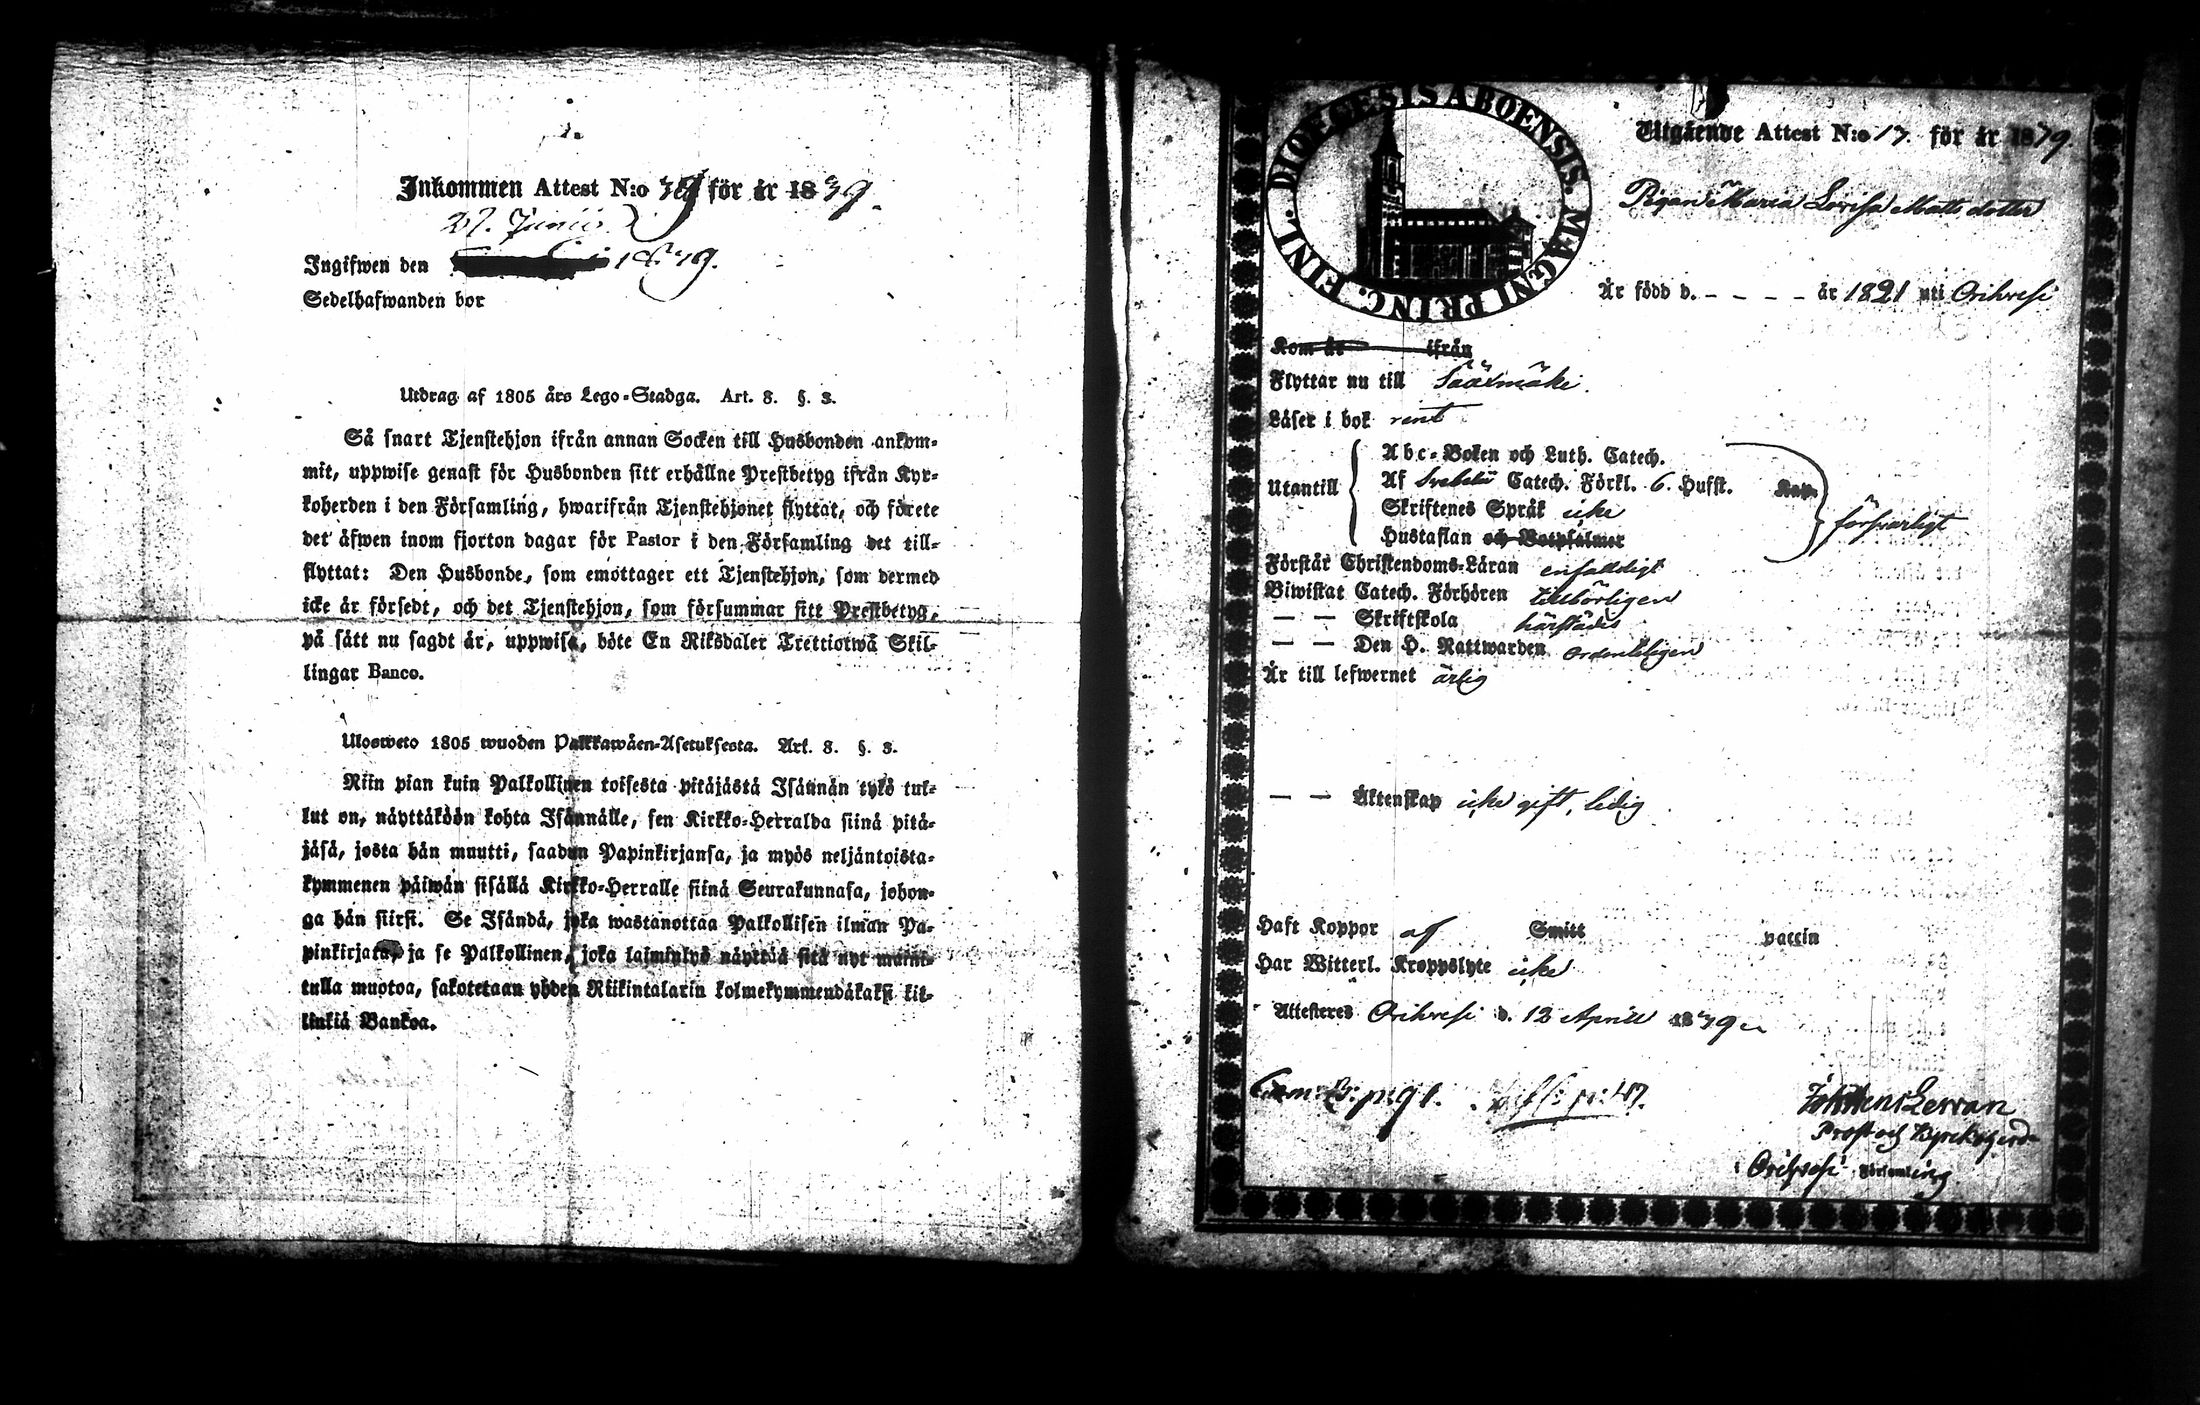 Inkommen Attest N:o 39 för år 1839.
27. Junii
Ingifwen den 1839.
Sedelhafwanden bor
Utdrag af 1805 års Lego-Stadga. Art. 8. §. 3.
Så snart Tjenstehjon ifrån annan Socken till Husbonden ankom-
mit, uppwise genast för Husbonden sitt erhållne Prestbetyg ifrån Kyr-
koherden i den Församling, hwarifrån Tjenstehjonet flyttat, och förete
det äfwen inom fjorton dagar för Pastor i den Församling det till-
flyttat: Den Husbonde, som emottager ett Tjenstehjon, som dermed
icke är försedt, och det Tjenstehjon, som försummar sitt Prestbetyg,
på sätt nu sagdt är, uppwisa, böte En Riksdaler Trettiotwå Skil-
lingar Banco.
Ulosweto 1805 wuoden Palkkawäen-Asetuksesta. Art. 8. §. 3.
Niin pian kuin Palkollinen toisesta pitäjästä Isännän tykö tul-
lut on, näyttäköön kohta Isännälle, sen Kirkko-Herralda siinä pitä-
jäsä, josta hän muutti, saadun Papinkirjansa, ja myös neljäntoista-
kymmenen päiwän sisällä Kirkko-Herralle siinä Seurakunnasa, johon-
ga hän siirsi. Se Isändä, joka wastanottaa Palkollisen ilman Pa-
pinkirjata, ja se Palkollinen, joka laiminlyö näyttää sitä nyt maini-
tulla muotoa, sakotetaan yhden Riikintalarin kolmekymmendäkaksi kil-
linkiä Bankoa.
DIOECESIS ABOENSIS. MAGNI PRINC. FINL.
Utgående Attest N:o 17. för år 1839.
Pigan Maria Lovisa Matts dotter
Är född d. - - - - år 1821 uti Orihvesi
Kom år ifrån
Flyttar nu till Sääxmäki.
Läser i bok rent
Utantill
Abc-Boken och Luth. Catech.
Af Svebelii Catech. Förkl. 6. Hufst.
Skriftenes Språk icke
Hustaflan och Botpsalmer
försvarligt
Förstår Christendoms-Läran enfaldigt
Biwistat Catech. Förhören tillbörligen
— — Skriftskola härstädes
— — Den H. Nattwarden ordenteligen
Är till lefwernet ärlig
— — Äktenskap icke gift, ledig
Haft Koppor af Smitt vaccin
Har Witterl. Kroppslyte icke
Attesteres Orihvesi d. 12 Aprill 1839
Com: B: p: 91. p: 47.
Prost och Kyrkoherde
i Orihvesi Församling